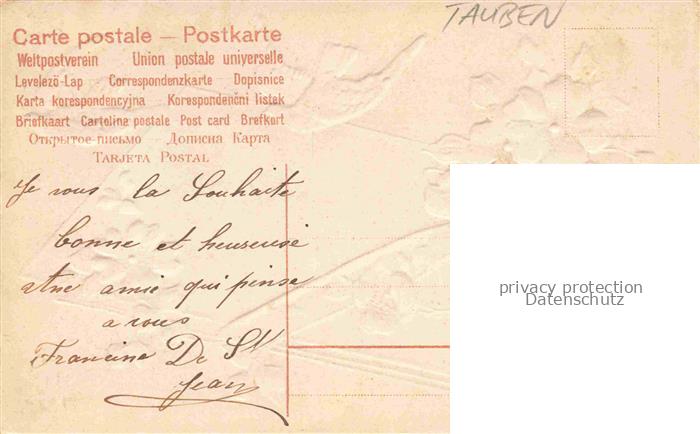 TAUBEN
Carte postale — Postkarte
Weltpostverein Union postale universelle
Levelező-Lap - Correspondenzkarte Dopisnice
Karta korespondencyjna Korespondenční lístek
Briefkaart Cartoline postale Post card Brefkort
Открытое письмо – Дописна Карта
TARJETA POSTAL
Je vous la Souhaite
bonne et heureuse
Une amie qui pense
a vous
Francine De St
Jean
privacy protection
Datenschutz